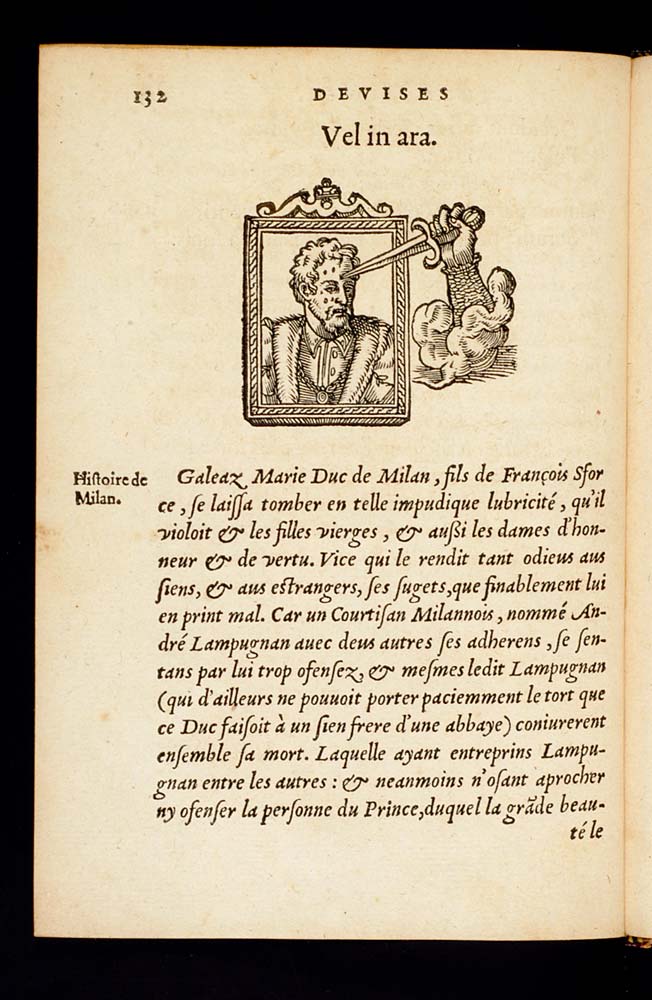 132 DEVISES
Vel in ara.
Histoire de
Milan.
Galeaz Marie Duc de Milan, fils de François Sfor
ce, se laissa tomber en telle impudique lubricité, qu'il
violoit & les filles vierges, & aussi les dames d'hon-
neur & de vertu. Vice qui le rendit tant odieus aus
siens, & aus estrangers, ses sugets, que finablement lui
en print mal. Car un Courtisan Milannois, nommé An-
dré Lampugnan auec deus autres ses adherens, se sen-
tans par lui trop ofensez, & mesmes ledit Lampugnan
(qui d'ailleurs ne pouuoit porter paciemment le tort que
ce Duc faisoit à un sien frere d'une abbaye) coniurerent
ensemble sa mort. Laquelle ayant entreprins Lampu-
gnan entre les autres: & neanmoins n'osant aprocher
ny ofenser la personne du Prince, duquel la grãde beau-
té le